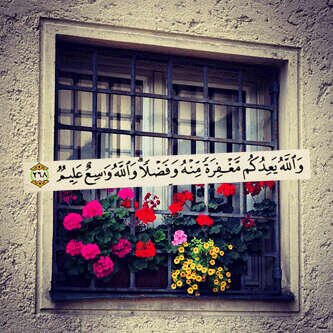 وَٱللَّهُ يَعِدُكُم مَّغْفِرَةً مِّنْهُ وَفَضْلًا ۗ وَٱللَّهُ وَٰسِعٌ عَلِيمٌ ٢٦٨